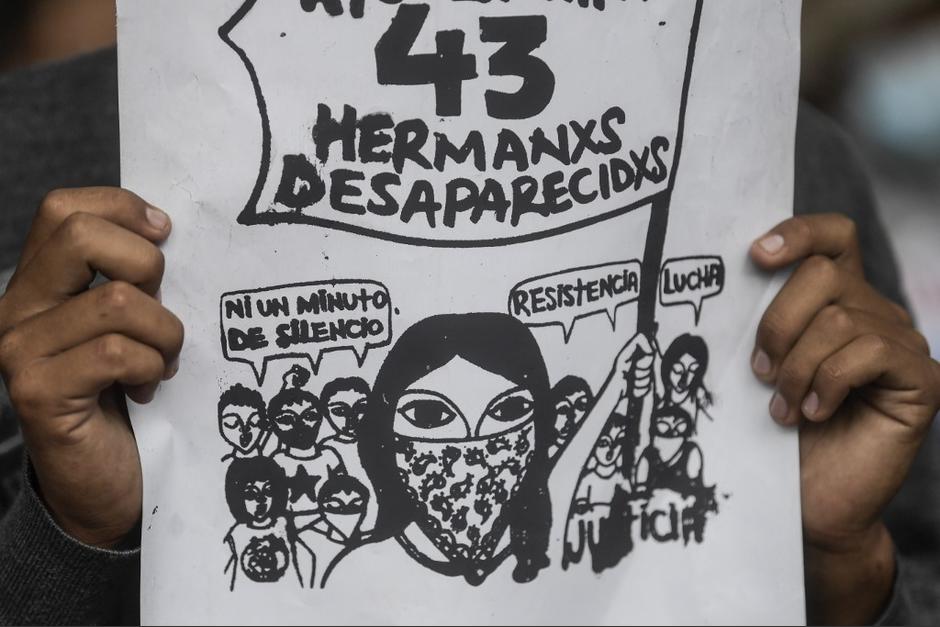 43
HERMANXS
DESAPARECIDXS
NI UN MINUTO
DE SILENCIO
RESISTENCIA
LUCHA
JUSTICIA